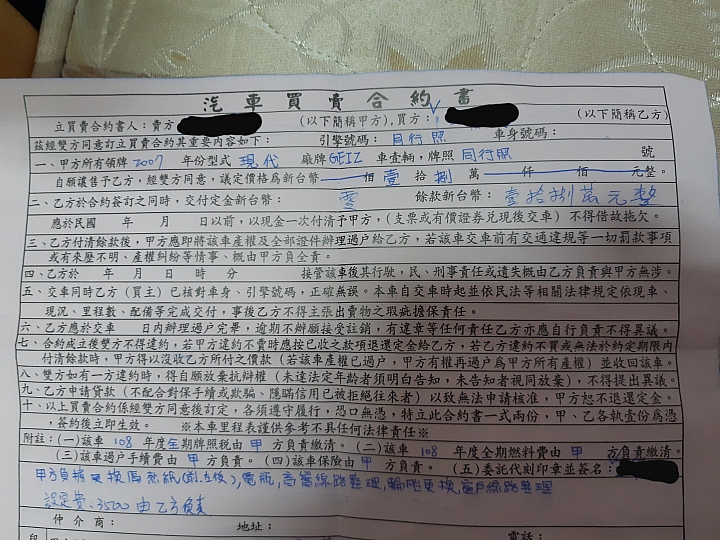 汽車買賣合約書
立買賣合約書人：賣方 (以下簡稱甲方),買方： (以下簡稱乙方)
茲經雙方同意訂立買賣合約其重要內容如下： 引擎號碼：同行照 車身號碼：
一、甲方所有領牌2007年份型式現代廠牌GEIZ車壹輛,牌照同行照號
自願讓售予乙方,經雙方同意,議定價格為新台幣 佰壹拾捌萬 仟 佰 元整。
二、乙方於合約簽訂之同時,交付定金新台幣： 零 餘款新台幣：壹拾捌萬元整
應於民國 年 月 日以前,以現金一次付清予甲方,(支票或有價證券兌現後交車) 不得借故拖欠。
三、乙方付清餘款後,甲方應即將該車產權及全部證件辦理過戶給乙方,若該車交車前有交通違規等一切罰款事項
或有來歷不明、產權糾紛等情事、概由甲方負全責。
四、乙方於 年 月 日 時 分 接管該車後其行駛,民、刑事責任或遺失概由乙方負責與甲方無涉。
五、交車同時乙方 (買主) 已核對車身、引擎號碼,正確無誤。本車自交車時起並依民法等相關法律規定依現車、
現況、里程數、配備等完成交付,事後乙方不得主張出賣物之瑕疵擔保責任。
六、乙方應於交車 日內辦理過戶完畢,逾期不辦願接受註銷,有違章等任何責任乙方亦應自行負責不得異議。
七、合約成立後雙方不得違約,若甲方違約不賣時應按已收之款項退還定金給乙方,若乙方違約不買或無法於約定期限內
付清餘款時,甲方得以沒收乙方所付之價款 (若該車產權已過戶,甲方有權再過戶為甲方所有產權) 並收回該車。
八、雙方如有一方違約時,得自願放棄抗辯權 (未達法定年齡者須明白告知,未告知者視同放棄),不得提出異議。
九、乙方申請貸款 (不配合對保手續或欺騙、隱瞞信用已被拒絕往來者) 以致無法申請核准,甲方恕不退還定金。
十、以上買賣合約係經雙方同意後訂定,各須遵守履行,恐口無憑,特立此合約書一式兩份,甲、乙各執壹份為憑
,簽約後立即生效。 ※本車里程表謹供參考不具任何法律責任※
附註：(一)該車 108 年度全期牌照稅由 甲 方負責繳清。(二)該車 108 年度全期燃料費由 甲 方負責繳清。
(三)該車過戶手續費由 甲 方負責。(四)該車保險由 甲 方負責。 (五) 委託代刻印章並簽名：
甲方負擔更換隔熱紙(側左後),電瓶,音響線路整理,輪胎更換,窗戶線路整理
設定費：3500由乙方負責
仲介商： 地址： 電話：